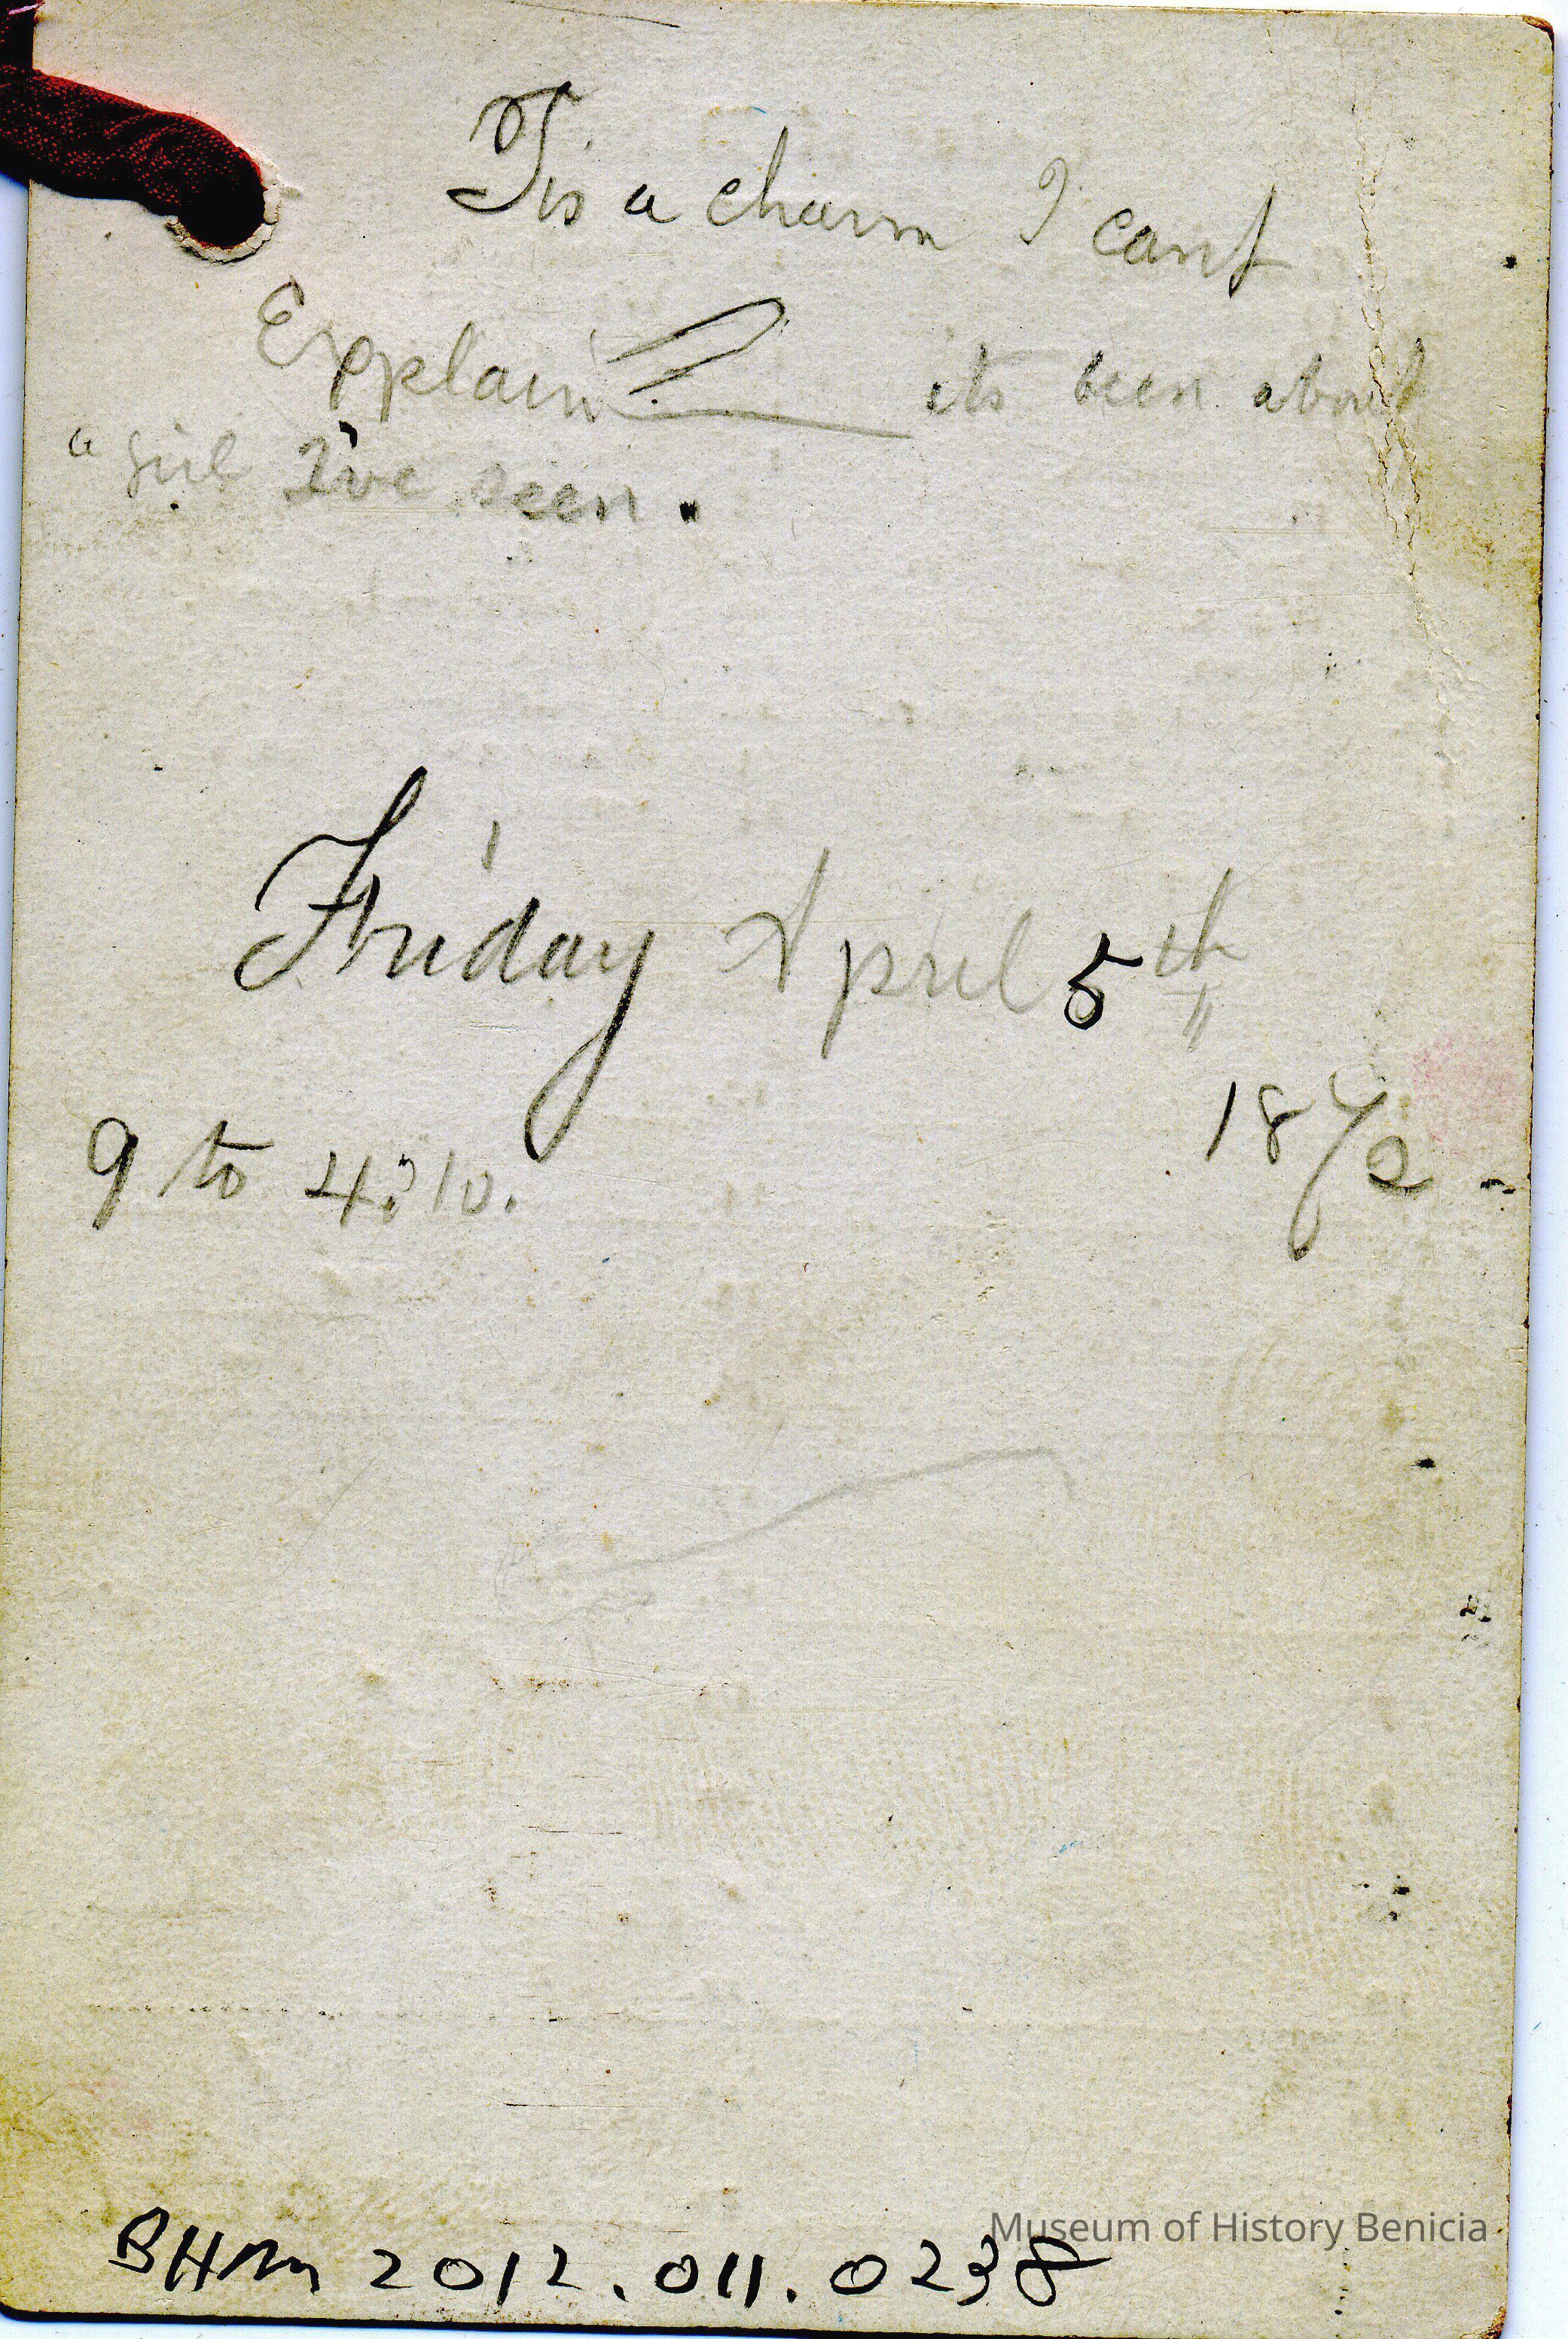 Tis a charm I cant
Explain its been about
a girl I've seen.
Friday April 5th
1872
9 to 4:10.
Museum of History Benicia
BHM 2012.011.0238